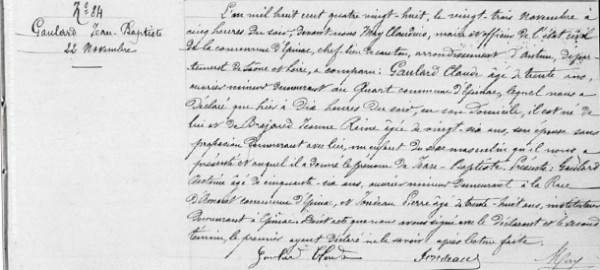 N° 84
Gaulard Jean-Baptiste
22 Novembre
L'an mil huit cent quatre-vingt-huit, le vingt-trois novembre à
cinq heures du soir, devant nous May Claudius, maire et officier de l'état civil
de la commune d'Epinac, chef-lieu de canton, arrondissement d'Autun, dépar-
tement de Saône et Loire, a comparu : Gaulard Claude âgé de trente ans,
ouvrier mineur demeurant au Quart commune d'Epinac, lequel nous a
déclaré que hier à dix heures du soir, en son domicile, il est né de
lui et de Brajard Jeanne Reine âgée de vingt-six ans, son épouse sans
profession demeurant avec lui, un enfant du sexe masculin qu'il nous a
présenté et auquel il a donné le prénom de Jean-Baptiste. Présents : Gaulard
âgé de cinquante-six ans, ouvrier mineur demeurant à la Rue
commune d'Epinac, et Jondeau Pierre âgé de trente-huit ans, instituteur
demeurant à Epinac. Dont acte que nous avons signé avec le déclarant et le second
témoin, le premier ayant déclaré ne le savoir après lecture faite.
Gaulard Claude Jondeau May